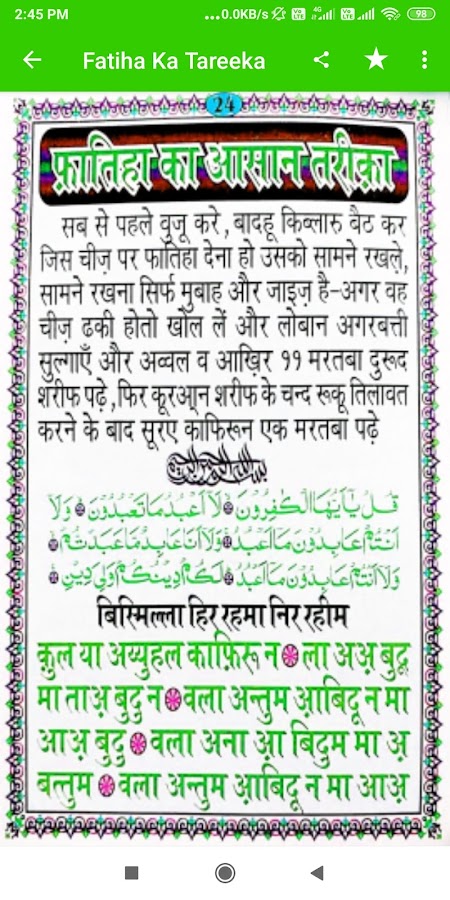 2:45 PM ...0.0KB/s 98
Fatiha Ka Tareeka
24
फ़ातिहा का आसान तरीक़ा
सब से पहले वुजू करे, बादहू किब्लारु बैठ कर
जिस चीज़ पर फातिहा देना हो उसको सामने रखले,
सामने रखना सिर्फ मुबाह और जाइज़ है-अगर वह
चीज़ ढकी होतो खोल लें और लोबान अगरबत्ती
सुल्गाएँ और अव्वल व आख़िर ११ मरतबा दुरूद
शरीफ पढ़े, फिर कूरआ्न शरीफ के चन्द रूकू तिलावत
करने के बाद सूरए काफिरून एक मरतबा पढ़े
قُلْ يٰۤاَيُّهَا الْكٰفِرُوْنَ لَاۤ اَعْبُدُ مَا تَعْبُدُوْنَ وَلَاۤ
اَنْتُمْ عَابِدُوْنَ مَاۤ اَعْبُدُ وَلَاۤ اَنَا عَابِدٌ مَّا عَبَدْتُّمْ
وَلَاۤ اَنْتُمْ عَابِدُوْنَ مَاۤ اَعْبُدُ لَكُمْ دِيْنُكُمْ وَلِيَ دِيْنِ
बिस्मिल्ला हिर रहमा निर रहीम
क़ुल या अय्युहल काफ़िरू न ला अअ़ बुदू
मा ताअ़ बुदु न वला अन्तुम आ़बिदू न मा
आअ़ बुदु वला अना आ़ बिदुम मा अ़
बत्तुम वला अन्तुम आ़बिदू न मा आअ़